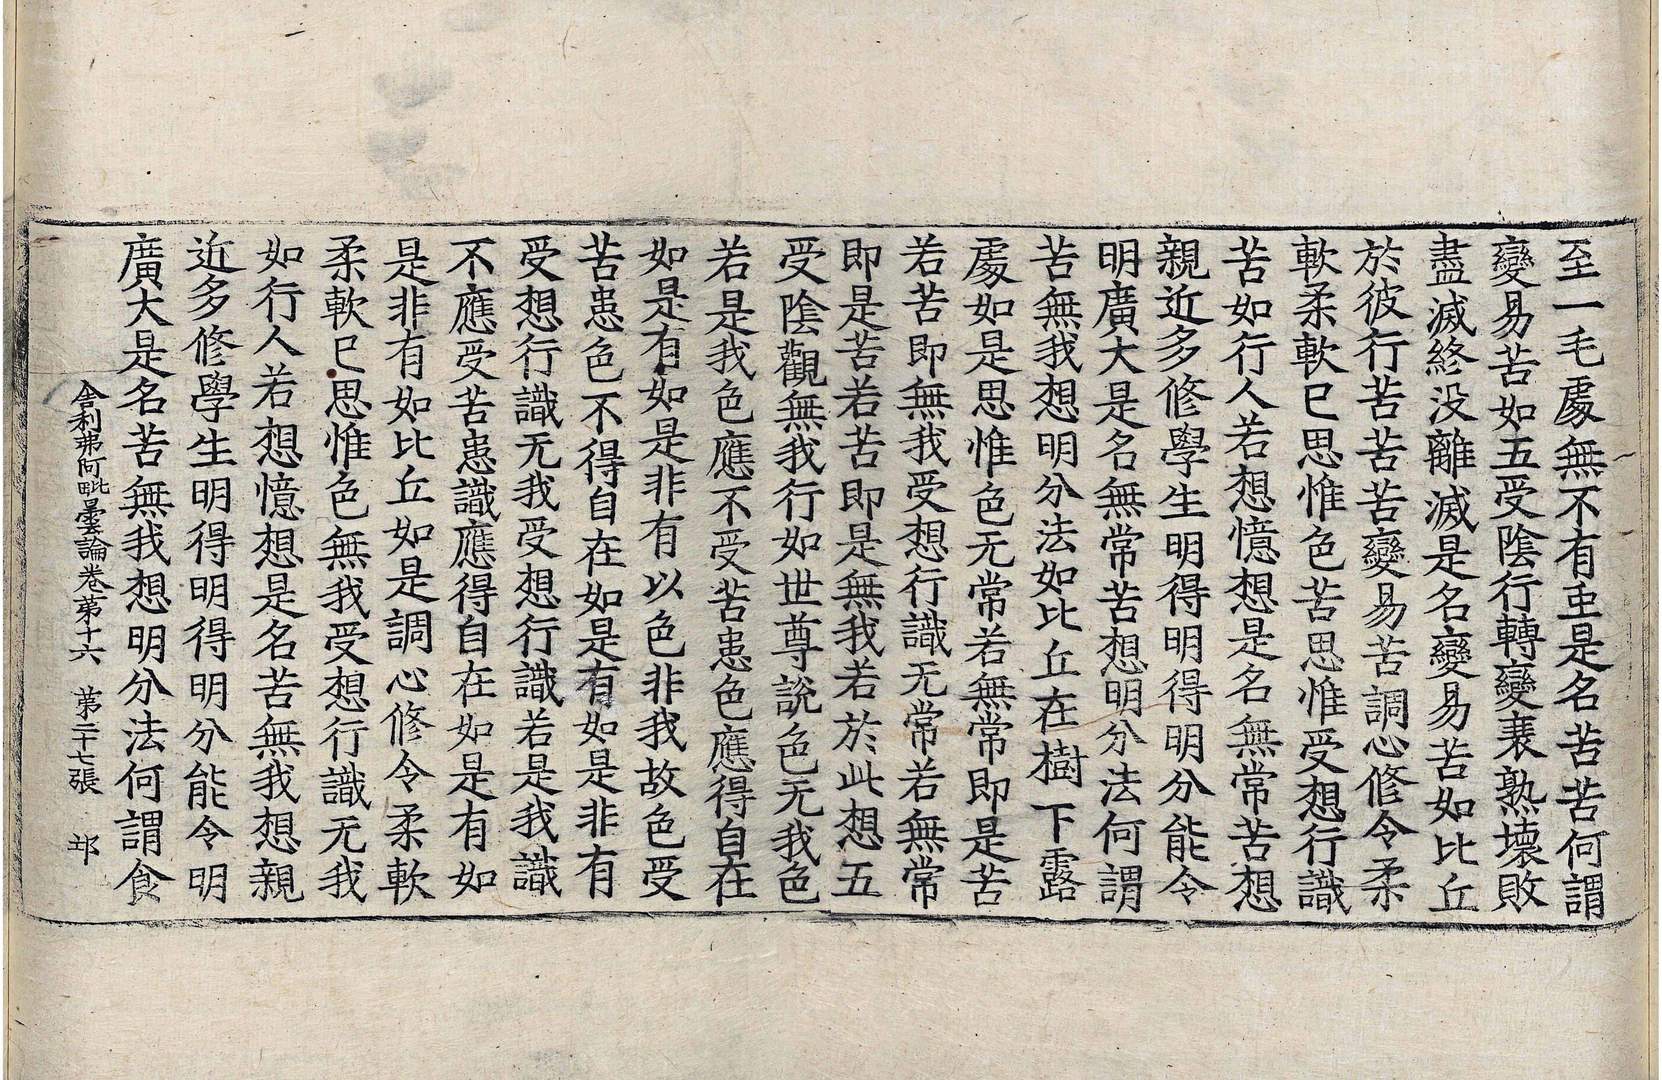 至一毛處無不有虫是名苦苦何謂
變易苦如五受陰行轉變衰熟壞敗
盡滅終没離滅是名變易苦如比丘
於彼行苦苦苦變易苦調心修令柔
軟柔軟已思惟色苦思惟受想行識
苦如行人若想憶想是名無常苦想
親近多修學生明得明得明分能令
明廣大是名無常苦想明分法何謂
苦無我想明分法如比丘在樹下露
處如是思惟色无常若無常即是苦
若苦即無我受想行識无常若無常
即是苦若苦即是無我若於此想五
受陰觀無我行如世尊說色无我色
若是我色應不受苦患色應得自在
如是有如是非有以色非我故色受
苦患色不得自在如是有如是非有
受想行識无我受想行識若是我識
不應受苦患識應得自在如是有如
是非有如比丘如是調心修令柔軟
柔軟已思惟色無我受想行識无我
如行人若想憶想是名苦無我想親
近多修學生明得明得明分能令明
廣大是名苦無我想明分法何謂食
舍利弗阿毗曇論卷第十六 第二十七張